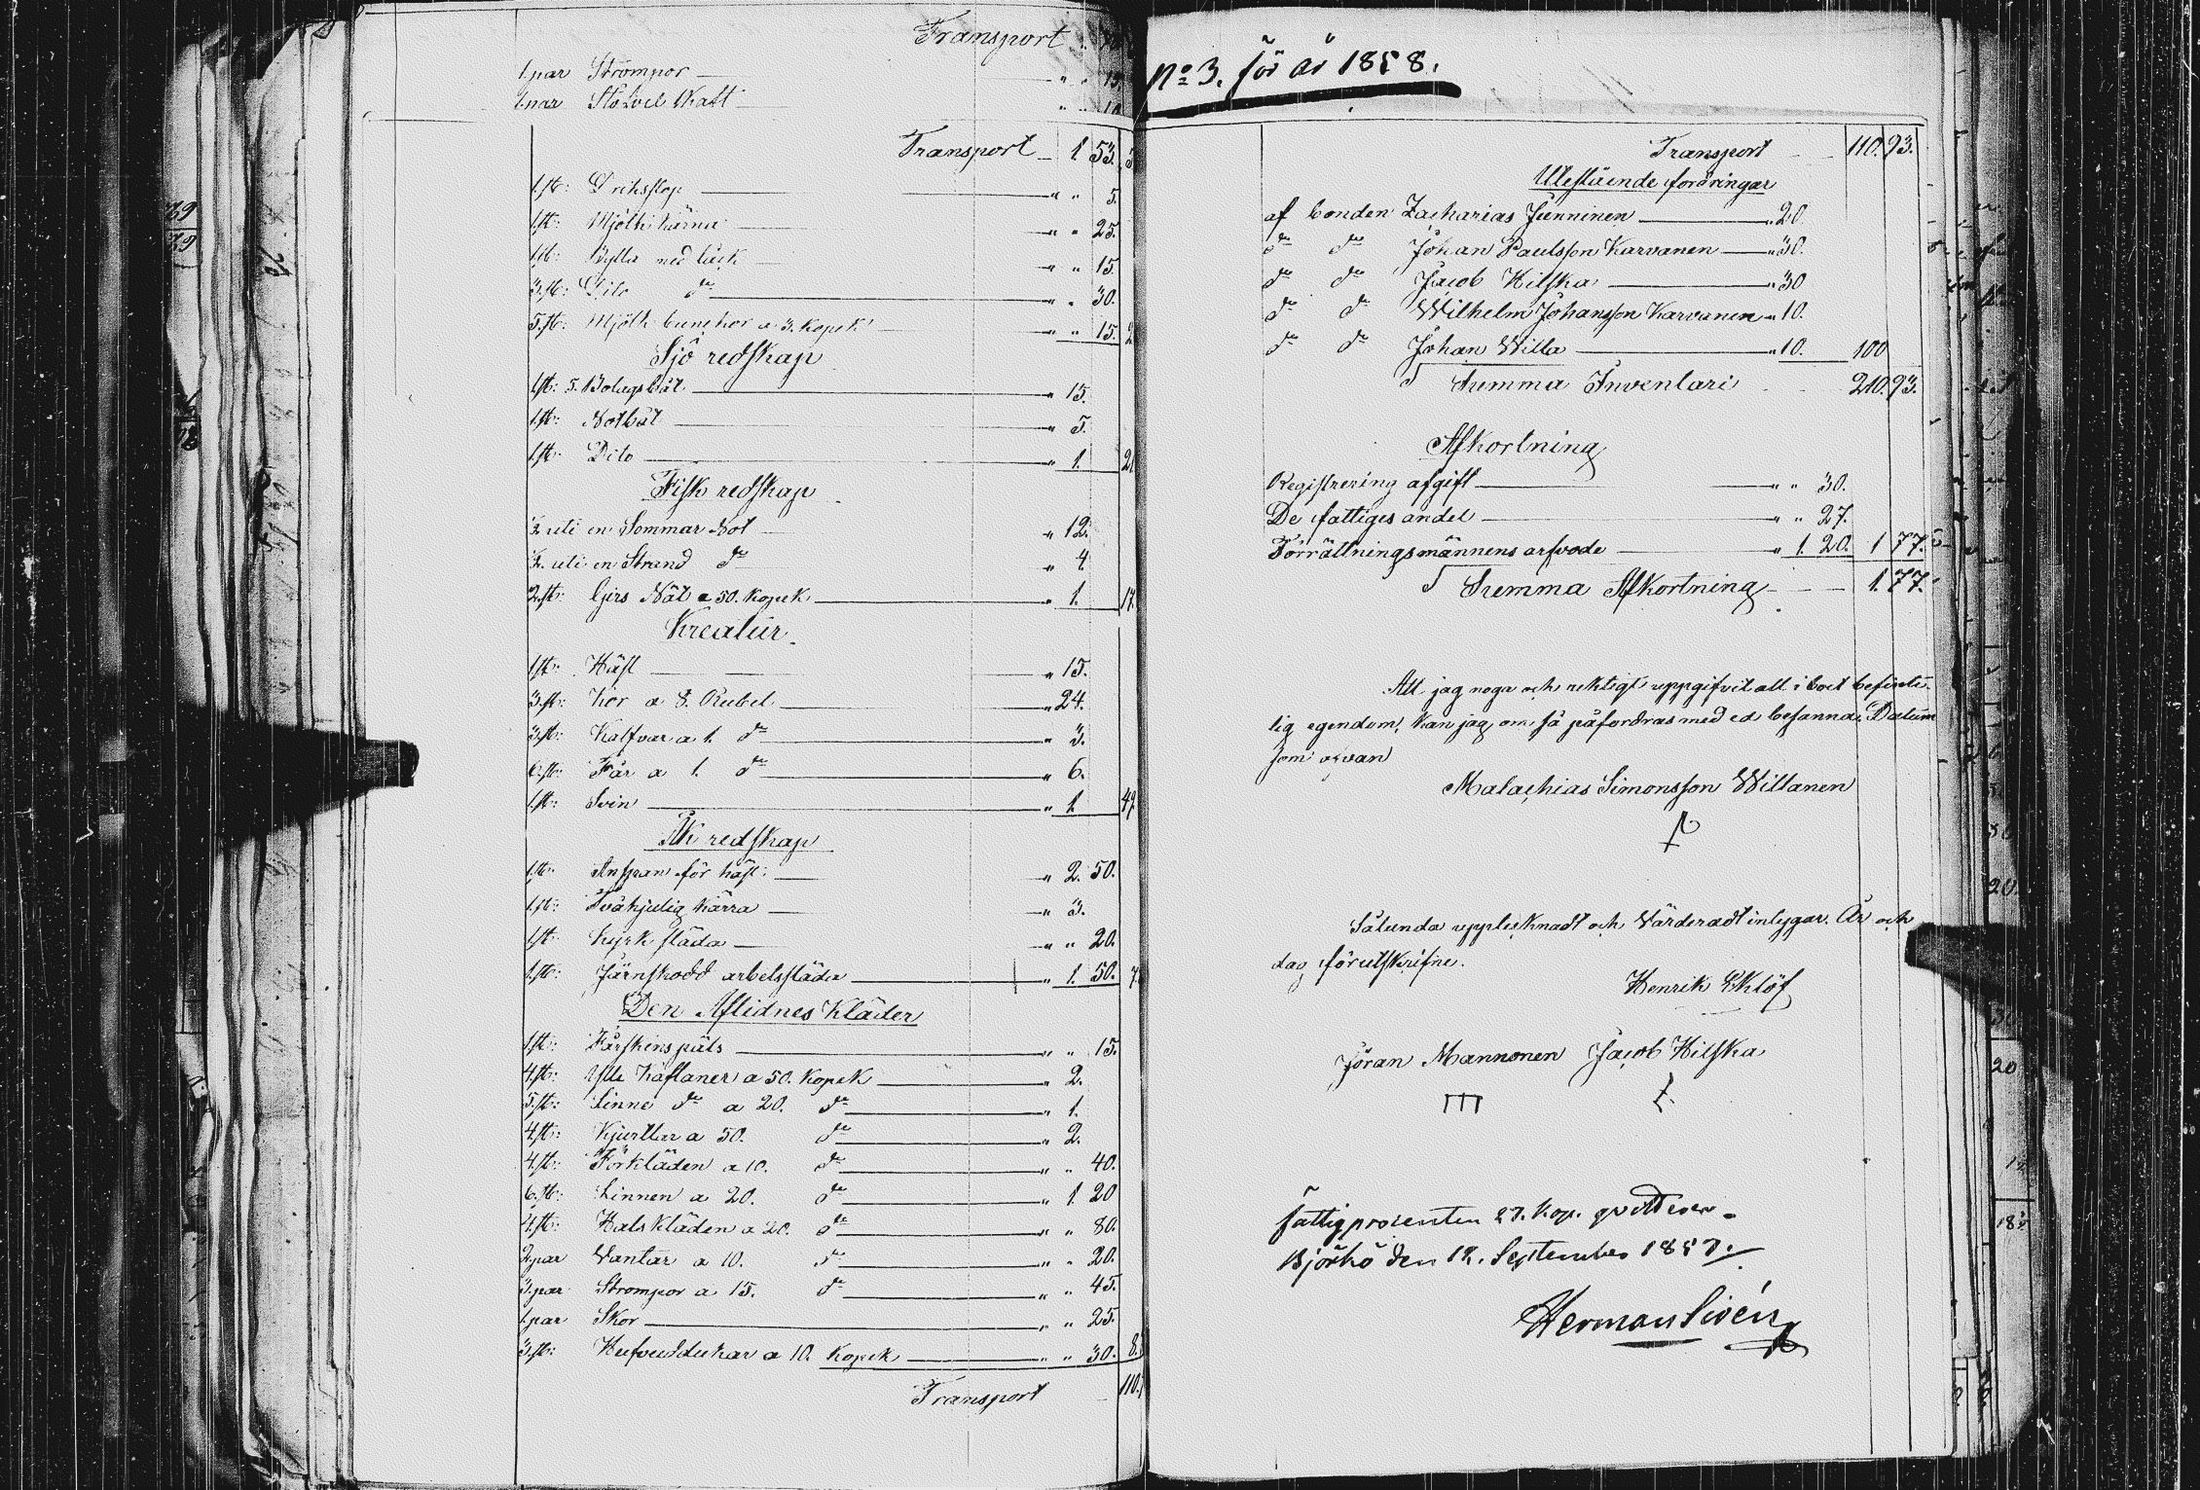 Transport
1. par Strumpor " " 15.
1. par Stöfvel Skaft " " 10
Transport 1. 53.
1. st: Drikstop " " 5.
1. st: Mjölk kärna " " 25.
1. st: Bytta med låck " " 15.
3. st: Dito do " " 30.
5. st: Mjölk bunckor a 3. Kopek " " 15.
Sjö redskap
1. st: Bolagsbåt " 15.
1. st: Notbåt " 5.
1. st: Dito " 1. 21
Fisk redskap
½ uti en Sommar Not " 12.
½ uti en Strand do " 4.
2. st: Gjers Nät a 50. Kopek " 1. 17.
Kreatur
1. st: Häst " 15.
3. st: Kor a 8. Rubel " 24.
3. st: Kalfvar a 1. do " 3.
6. st: Får a 1. do " 6.
1. st: Svin " 1. 49
Åk redskap
1. st: Anspan för häst " 2. 50.
1. st: Tvåhjulig Kärra " 3.
1. st: Kyrk släda " " 20.
1. st: Järnskodd arbetssläda " 1. 50. 7.
Den Aflidnes Kläder
1. st: Fårskinspäls " " 15.
4. st: Ylle Kaftaner a 50. Kopek " 2.
5. st: Linne do a 20. do " 1.
4. st: Kjurtlar a 50. do " 2.
4. st: Förkläden a 10. do " " 40.
6. st: Linnen a 20. do " 1. 20
4. st: Halskläden a 20. do " " 80.
2. par Vantar a 10. do " " 20.
3. par Strumpor a 15. do " " 45.
1. par Skor " " 25.
3. st: Hufvuddukar a 10. Kopek " " 30. 8.
Transport 110.
No 3. för år 1858.
Transport 110. 93.
Utestående fordringar
af bonden Zacharias Junninen " 20.
do do Johan Paulsson Karvanen " 30.
do do Jacob Hilska " 30
do do Wilhelm Johansson Karvanen " 10.
do do Johan Willa " 10. 100
Summa Inventari 210. 93.
Afkortning
Registrering afgift " " 30.
De fattiges andel " " 27.
Förrättningsmännens arfvode " 1. 20. 1 77.
Summa Afkortning 1. 77.
Att jag noga och riktigt uppgifvit all i boet befint-
lig egendom, kan jag om så påfordras med ed besanna. Datum
som ofvan
Malachias Simonsson Willanen
Sålunda upptecknadt och Värderadt intygar. År och
dag förutskrifne.
Henrik Eklöf
Jöran Mannonen Jacob Hilska
Fattigprocenten 27. Kop. qvitteras.
Björkö den 12. September 1857.
Herman Sirén